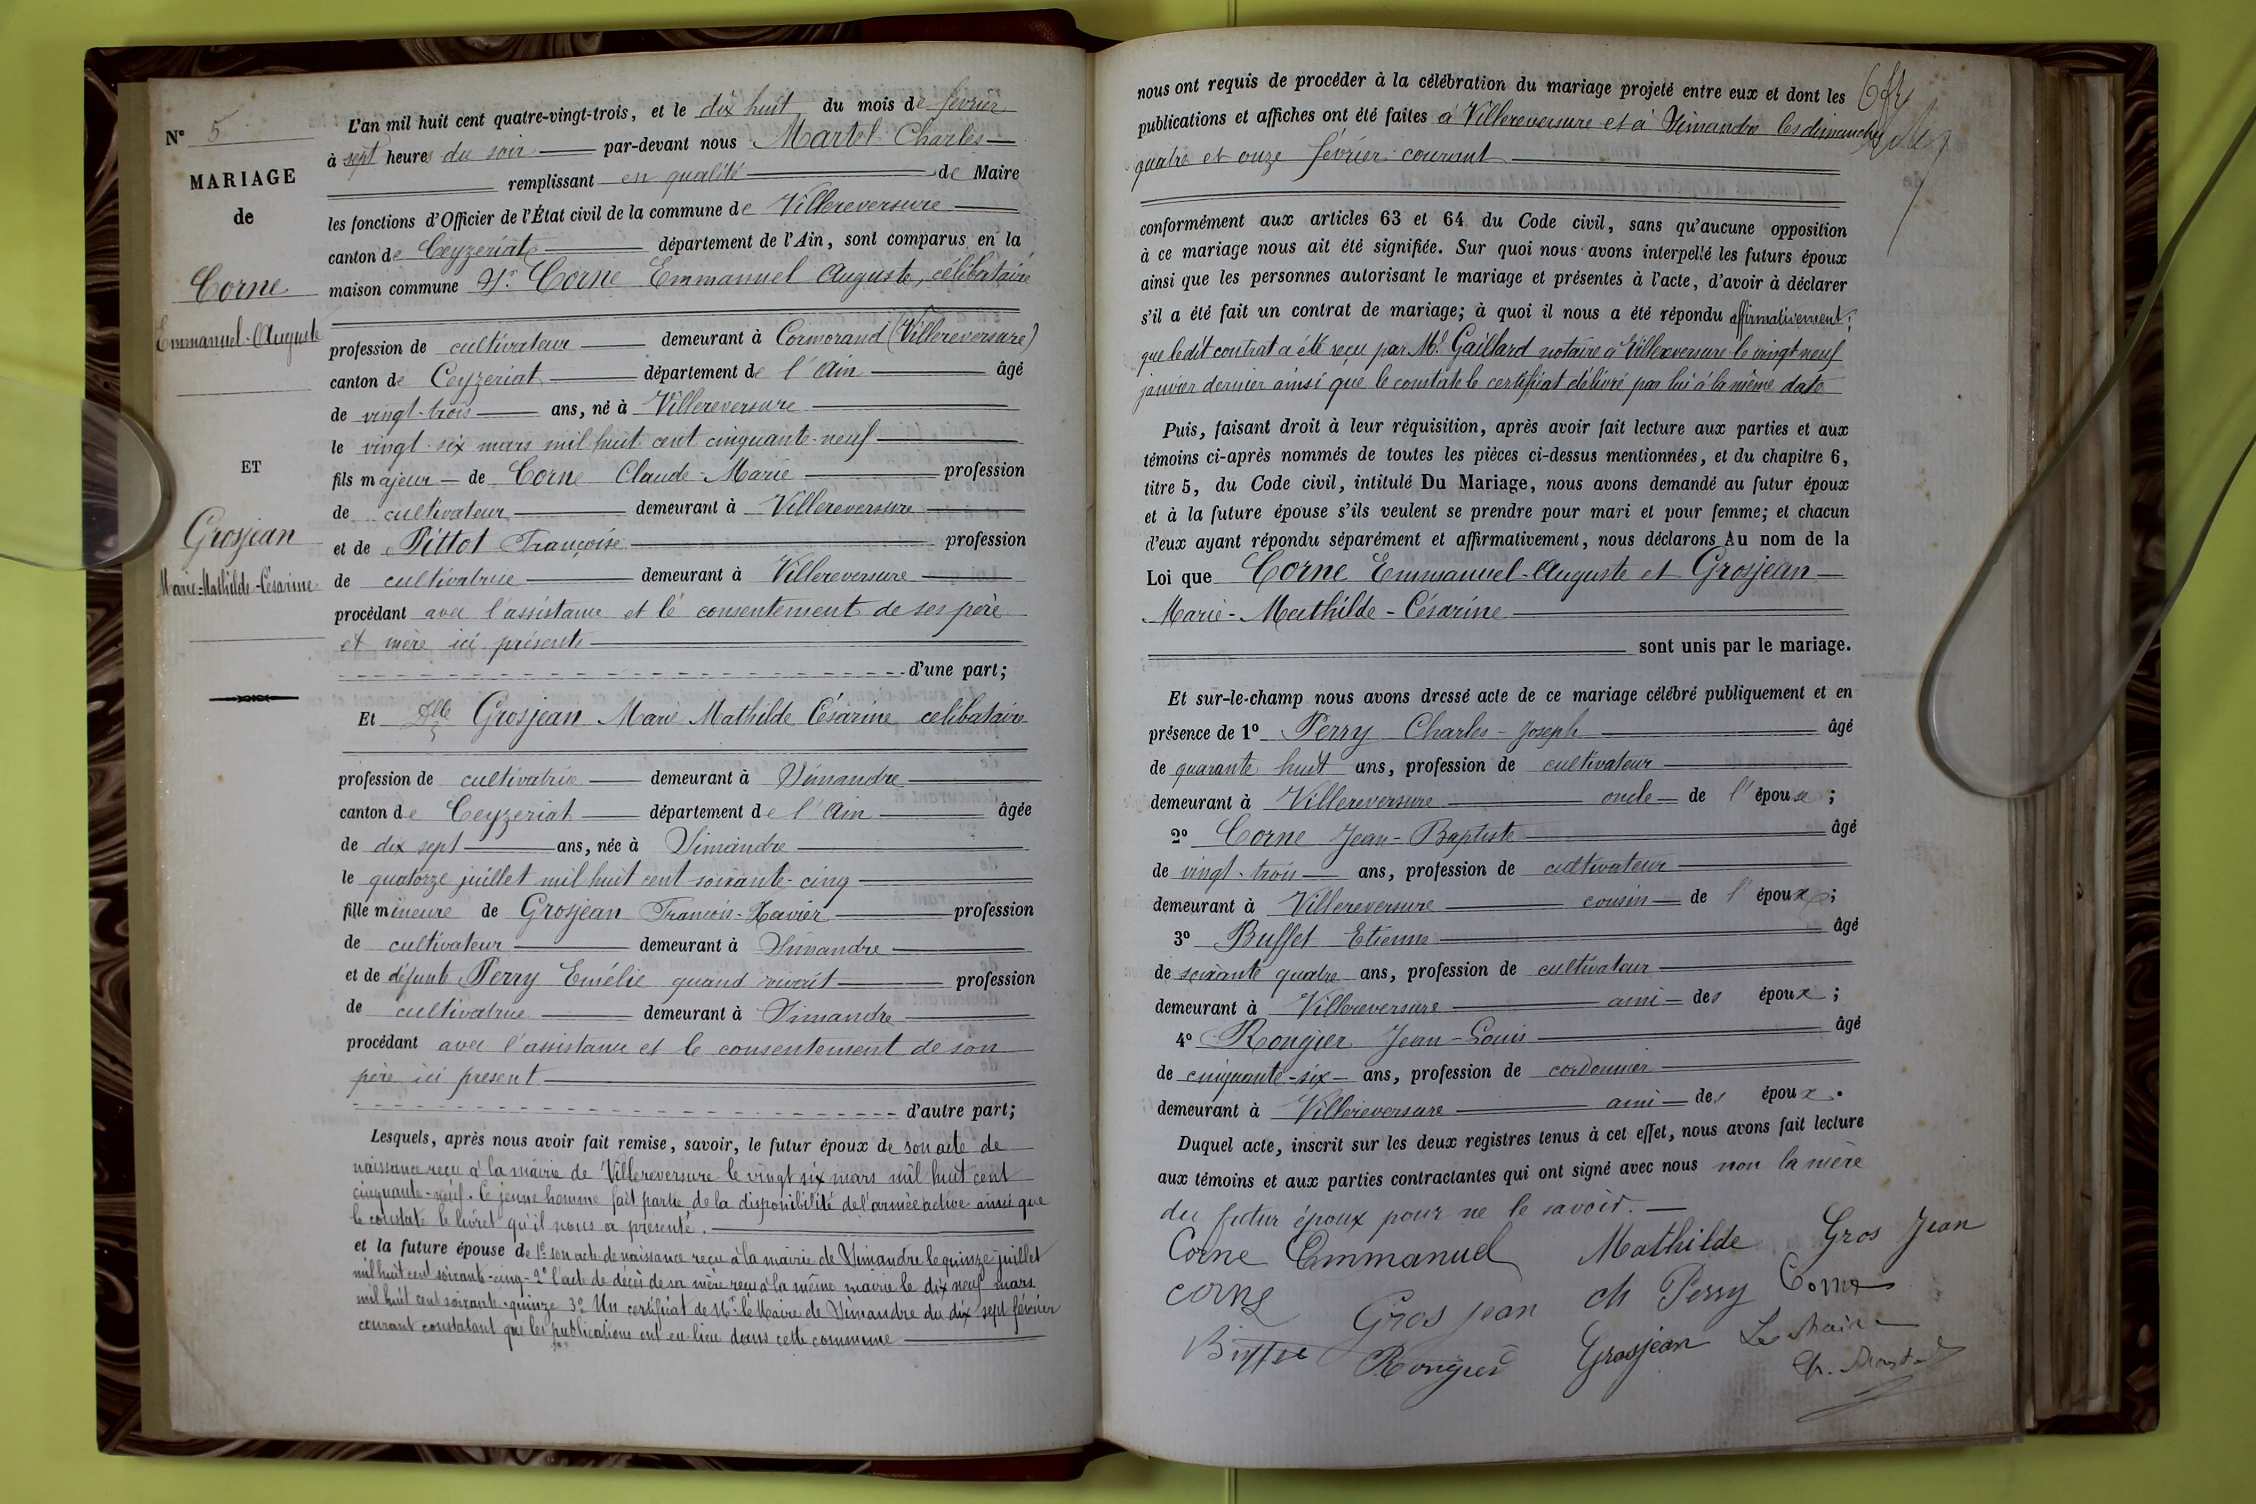 N° 5
MARIAGE
de
Corne
Emmanuel-Auguste
ET
Grosjean
Marie-Mathilde-Césarine
L'an mil huit cent quatre-vingt-trois, et le dix huit du mois de février
à sept heures du soir par-devant nous Martel Charles
remplissant en qualité de Maire
les fonctions d'Officier de l'État civil de la commune de Villereversure
canton de Ceyzeriat département de l'Ain, sont comparus en la
maison commune Sr. Corne Emmanuel Auguste, célibataire
profession de cultivateur demeurant à Cormorand (Villereversure)
canton de Ceyzeriat département de l'Ain âgé
de vingt-trois ans, né à Villereversure
le vingt-six mars mil huit cent cinquante-neuf
fils majeur de Corne Claude-Marie profession
de cultivateur demeurant à Villereversure
et de Pittot Françoise profession
de cultivatrice demeurant à Villereversure
procédant avec l'assistance et le consentement de ses père
et mère ici présents
d'une part;
Et Dlle Grosjean Marie Mathilde Césarine célibataire
profession de cultivatrice demeurant à Simandre
canton de Ceyzeriat département de l'Ain âgée
de dix sept ans, née à Simandre
le quatorze juillet mil huit cent soixante-cinq
fille mineure de Grosjean François-Xavier profession
de cultivateur demeurant à Simandre
et de défunte Perry Emélie quand vivait profession
de cultivatrice demeurant à Simandre
procédant avec l'assistance et le consentement de son
père ici present
d'autre part;
Lesquels, après nous avoir fait remise, savoir, le futur époux de son acte de
naissance reçu à la mairie de Villereversure le vingt six mars mil huit cent
cinquante-neuf. Ce jeune homme fait partie de la disponibilité de l'armée active ainsi que
le constate le livret qu'il nous a presenté.
et la future épouse de 1° son acte de naissance reçu à la mairie de Simandre le quinze juillet
mil huit cent soixante-cinq- 2° l'acte de décès de sa mère reçu à la même mairie le dix neuf mars
mil huit cent soixante-quinze 3° Un certificat de Mr. le Maire de Simandre du dix sept février
courant constatant que les publications ont eu lieu dans cette commune
nous ont requis de procéder à la célébration du mariage projeté entre eux et dont les
publications et affiches ont été faites à Villereversure et à Simandre les dimanches
quatre et onze février courant
conformément aux articles 63 et 64 du Code civil, sans qu'aucune opposition
à ce mariage nous ait été signifiée. Sur quoi nous avons interpellé les futurs époux
ainsi que les personnes autorisant le mariage et présentes à l'acte, d'avoir à déclarer
s'il a été fait un contrat de mariage; à quoi il nous a été répondu affirmativement;
que ledit contrat a été reçu par Me Gaillard notaire à Villereversure le vingt neuf
janvier dernier ainsi que le constate le certificat délivré par lui à la même date
Puis, faisant droit à leur réquisition, après avoir fait lecture aux parties et aux
témoins ci-après nommés de toutes les pièces ci-dessus mentionnées, et du chapitre 6,
titre 5, du Code civil, intitulé Du Mariage, nous avons demandé au futur époux
et à la future épouse s'ils veulent se prendre pour mari et pour femme; et chacun
d'eux ayant répondu séparément et affirmativement, nous déclarons Au nom de la
Loi que Corne Emmanuel-Auguste et Grosjean
Marie-Mathilde-Césarine
sont unis par le mariage.
Et sur-le-champ nous avons dressé acte de ce mariage célébré publiquement et en
présence de 1° Perry Charles-Joseph âgé
de quarante huit ans, profession de cultivateur
demeurant à Villereversure oncle de l'épouse;
2° Corne Jean-Baptiste âgé
de vingt-trois ans, profession de cultivateur
demeurant à Villereversure cousin de l'époux;
3° Buffet Etienne âgé
de soixante quatre ans, profession de cultivateur
demeurant à Villereversure ami des époux;
4° Rongier Jean-Louis âgé
de cinquante-six ans, profession de cordonnier
demeurant à Villereversure ami des époux.
Duquel acte, inscrit sur les deux registres tenus à cet effet, nous avons fait lecture
aux témoins et aux parties contractantes qui ont signé avec nous non la mère
du futur époux pour ne le savoir.
Corne Emmanuel Mathilde Gros Jean
corne Gros jean ch Perry Corne
Rongier Grosjean Le Maire
Ch. Martel